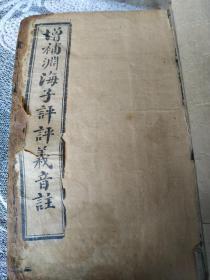 增補淵海子評評義音註